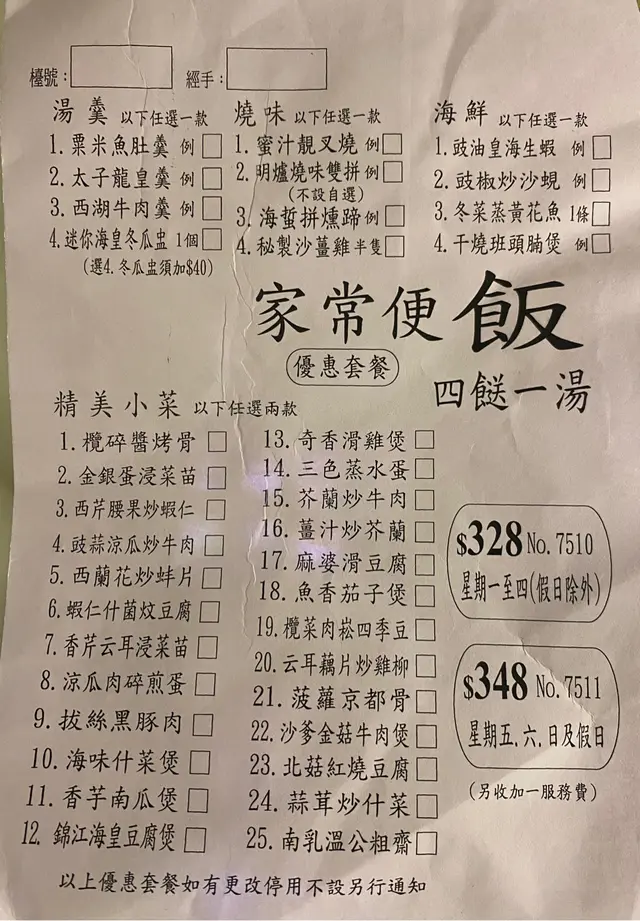 檯號：
經手：
湯羹 以下任選一款
1. 粟米魚肚羹 例
2. 太子龍皇羹 例
3. 西湖牛肉羹 例
4. 迷你海皇冬瓜盅 1個
(選4. 冬瓜盅須加$40)
燒味 以下任選一款
1. 蜜汁靚叉燒 例
2. 明爐燒味雙拼 例
(不設自選)
3. 海蜇拼燻蹄 例
4. 秘製沙薑雞 半隻
海鮮 以下任選一款
1. 豉油皇海生蝦 例
2. 豉椒炒沙蜆 例
3. 冬菜蒸黃花魚 1條
4. 干燒班頭腩煲 例
家常便飯
優惠套餐
四餸一湯
精美小菜 以下任選兩款
1. 欖碎醬烤骨
2. 金銀蛋浸菜苗
3. 西芹腰果炒蝦仁
4. 豉蒜涼瓜炒牛肉
5. 西蘭花炒蚌片
6. 蝦仁什菌炆豆腐
7. 香芹云耳浸菜苗
8. 涼瓜肉碎煎蛋
9. 拔絲黑豚肉
10. 海味什菜煲
11. 香芋南瓜煲
12. 錦江海皇豆腐煲
13. 奇香滑雞煲
14. 三色蒸水蛋
15. 芥蘭炒牛肉
16. 薑汁炒芥蘭
17. 麻婆滑豆腐
18. 魚香茄子煲
19. 欖菜肉崧四季豆
20. 云耳藕片炒雞柳
21. 菠蘿京都骨
22. 沙爹金菇牛肉煲
23. 北菇紅燒豆腐
24. 蒜茸炒什菜
25. 南乳溫公粗齋
$328 No. 7510
星期一至四(假日除外)
$348 No. 7511
星期五. 六. 日及假日
(另收加一服務費)
以上優惠套餐如有更改停用不設另行通知